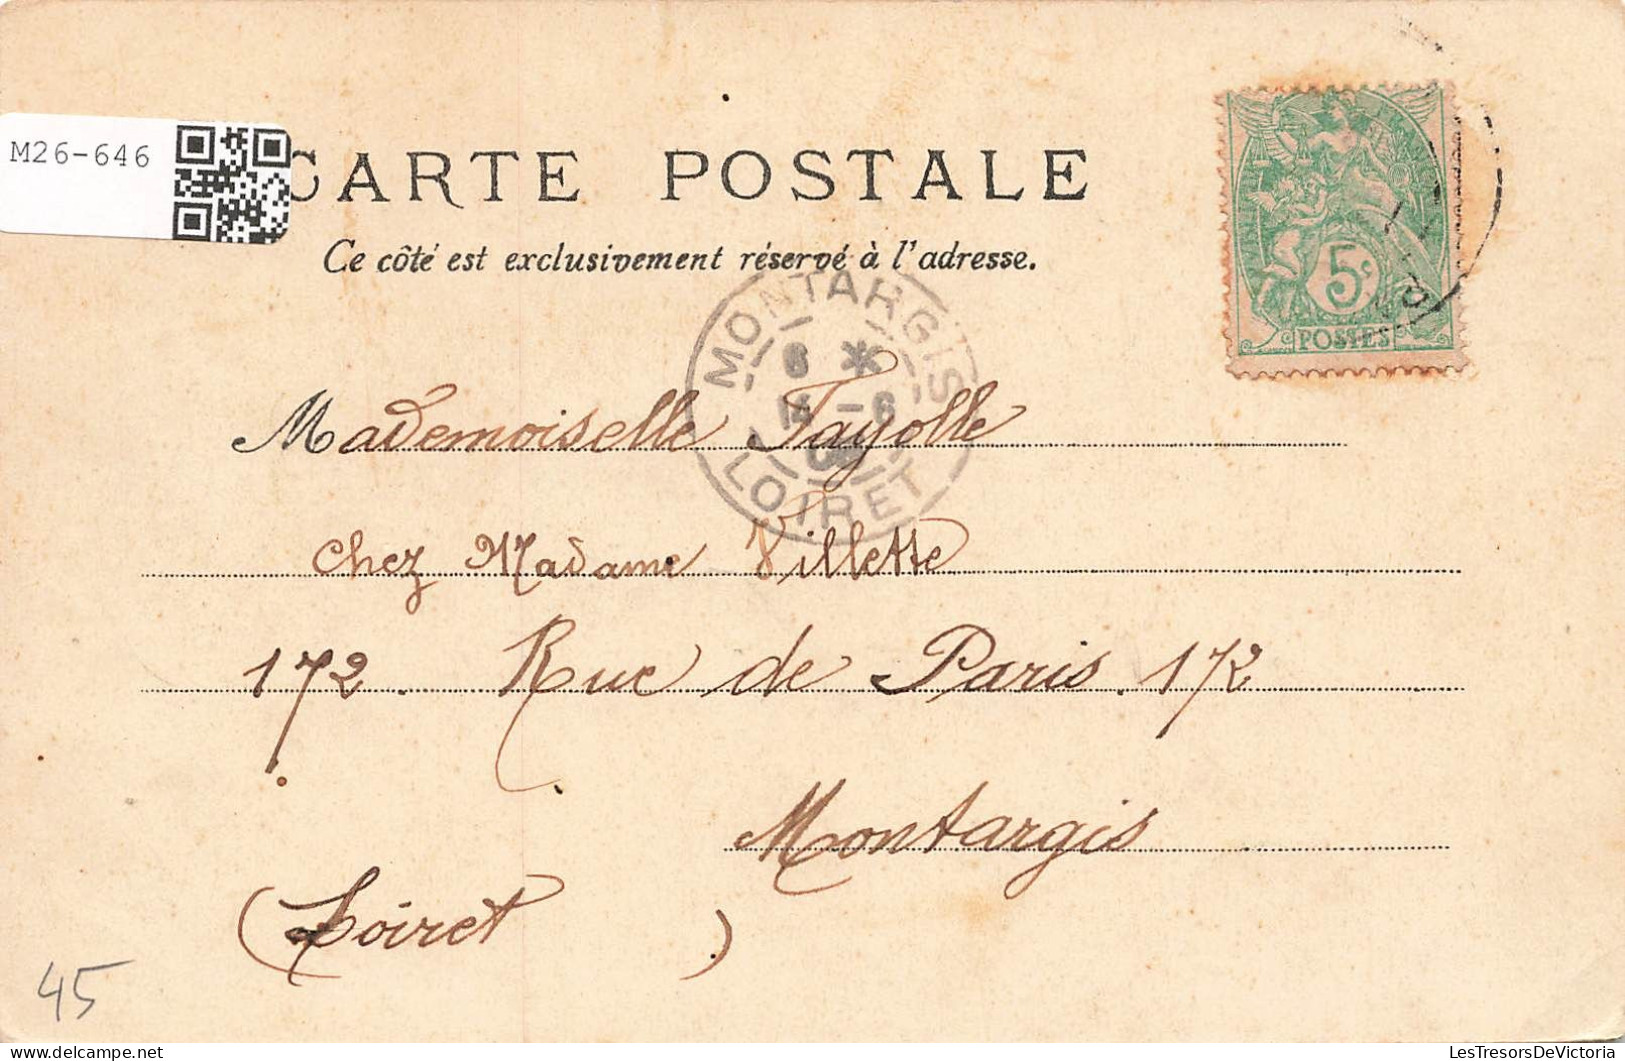 M26-646
CARTE POSTALE
Ce côté est exclusivement réservé à l'adresse.
5c
POSTES
MONTARGIS
6 *
14 - 6
LOIRET
Mademoiselle Fayolle
chez Madame Villette
172. Rue de Paris. 172
Montargis
(Loiret)
45
LesTresorsDeVictoria